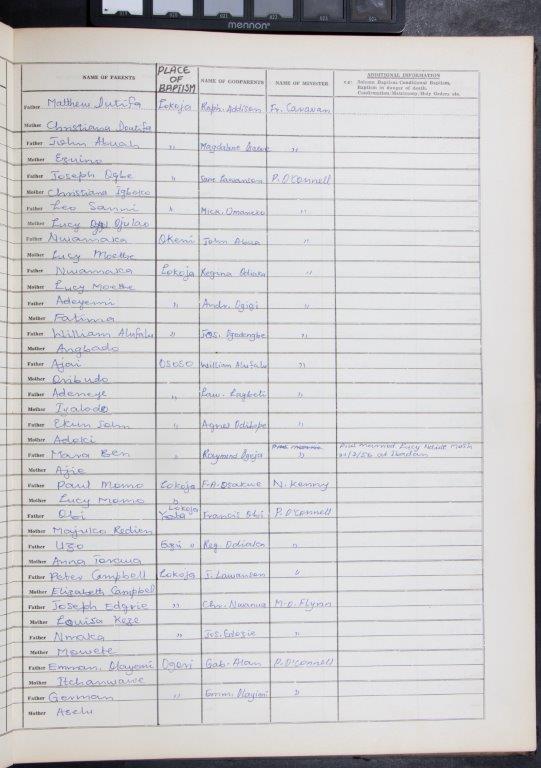 mennon
NAME OF PARENTS PLACE OF BAPTISM NAME OF GODPARENTS NAME OF MINISTER ADDITIONAL INFORMATION
e.g: Solemn Baptism/Conditional Baptism,
Baptism in danger of death,
Confirmation/Matrimony/Holy Orders etc.
Father Matthew Dutifa Lokoja Raph. Addison Fr. Caravan
Mother Christiana Doutifa
Father John Abuah " Magdalene "
Mother Equino
Father Joseph Ogbe " Lawanson P. O'Connell
Mother Christiana Igboko
Father Leo Sanni " Mick. Omaneko "
Mother Lucy Ojulao
Father Nwamaka Okeni John Abua "
Mother Lucy Moethe
Father Nwamaka Lokoja Regina Odiaka "
Mother Lucy Moethe
Father Adeyemi " Andr. Ogigi "
Mother Fatima
Father William Alufalu " Jos. "
Mother Angbado
Father Ajai Ososo William Alufalu "
Mother Oribudo
Father Adeneye " Law. Lagbeti "
Mother Iyalode
Father Ekun John " Agnes "
Mother Adoki
Father Mara Ben " Raymond " married Lucy
Mother Ajie at Ibadan
Father Paul Momo Lokoja F.A. Osakwe N. Kenny
Mother Lucy Momo "
Father Obi Lokoja Francis Obi P. O'Connell
Mother Majulko
Father Uzo " Reg. Odiaka "
Mother Anna
Father Peter Campbell Lokoja J. Lawanson "
Mother Elizabeth Campbel
Father Joseph Edgrie " Chr. M.O. Flynn
Mother Louisa Keze
Father Nmaka " Jos. Edozie "
Mother Mowete
Father Emman. Olayemi Ogori Gab. Alan P. O'Connell
Mother Itchanwawe
Father German " Emm. Olayioni "
Mother Aselu